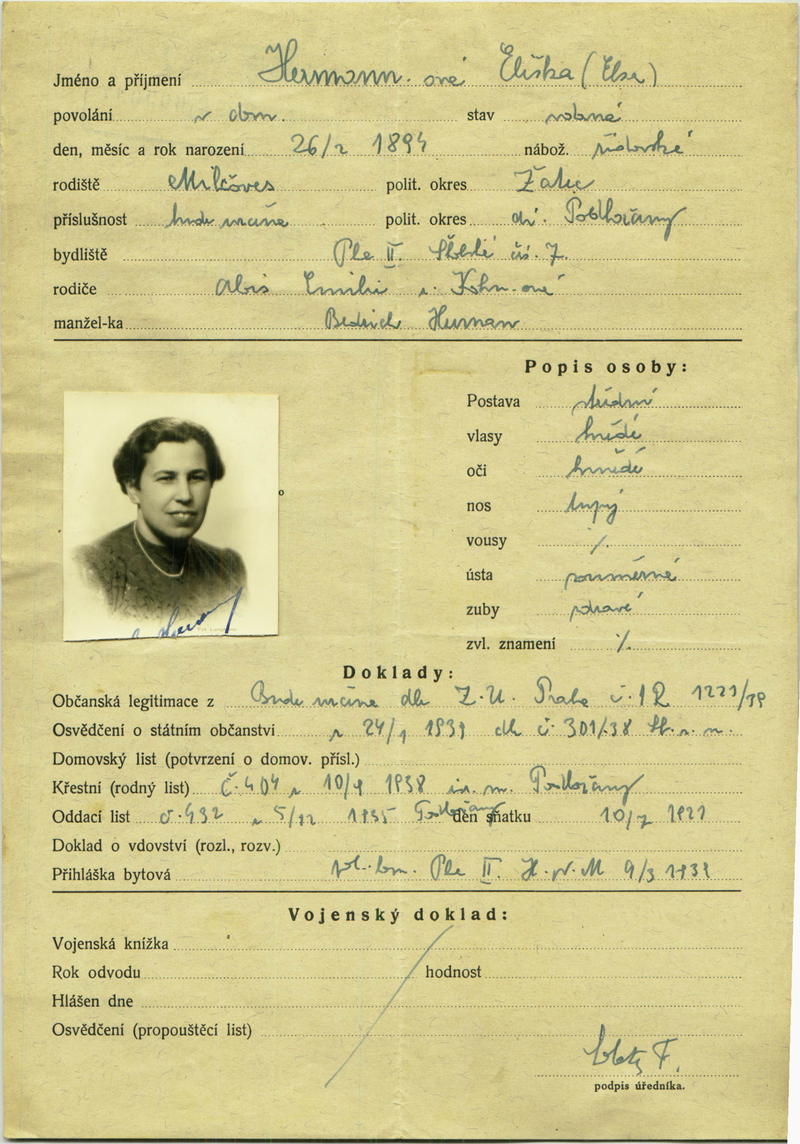 Jméno a příjmení Hermann-ové Eliška (Else)
povolání v dom. stav vdaná
den, měsíc a rok narození 26/2 1894 nábož. židovské
rodiště Milčoves polit. okres Žatec
příslušnost polit. okres Podbořany
bydliště II. čís. 7.
rodiče Alois Emilie r. Kohn-ové
manžel-ka Bedřich Herman
Popis osoby:
Postava střední
vlasy hnědé
oči hnědé
nos tupý
vousy ⁒
ústa souměrné
zuby zdravé
zvl. znamení ⁒
Doklady:
Občanská legitimace z dle Z.U. Praha č. 1221/39
Osvědčení o státním občanství z 24/1 1939 č. 301/38
Domovský list (potvrzení o domov. přísl.)
Křestní (rodný list) č. 404 z 10/9 1938 Podbořany
Oddací list č. 432 z 5/12 1935 Podbořany den sňatku 10/7 1921
Doklad o vdovství (rozl., rozv.)
Přihláška bytová pol. kom. II. 9/3 1939
Vojenský doklad:
Vojenská knížka
Rok odvodu hodnost
Hlášen dne
Osvědčení (propouštěcí list)
podpis úředníka.